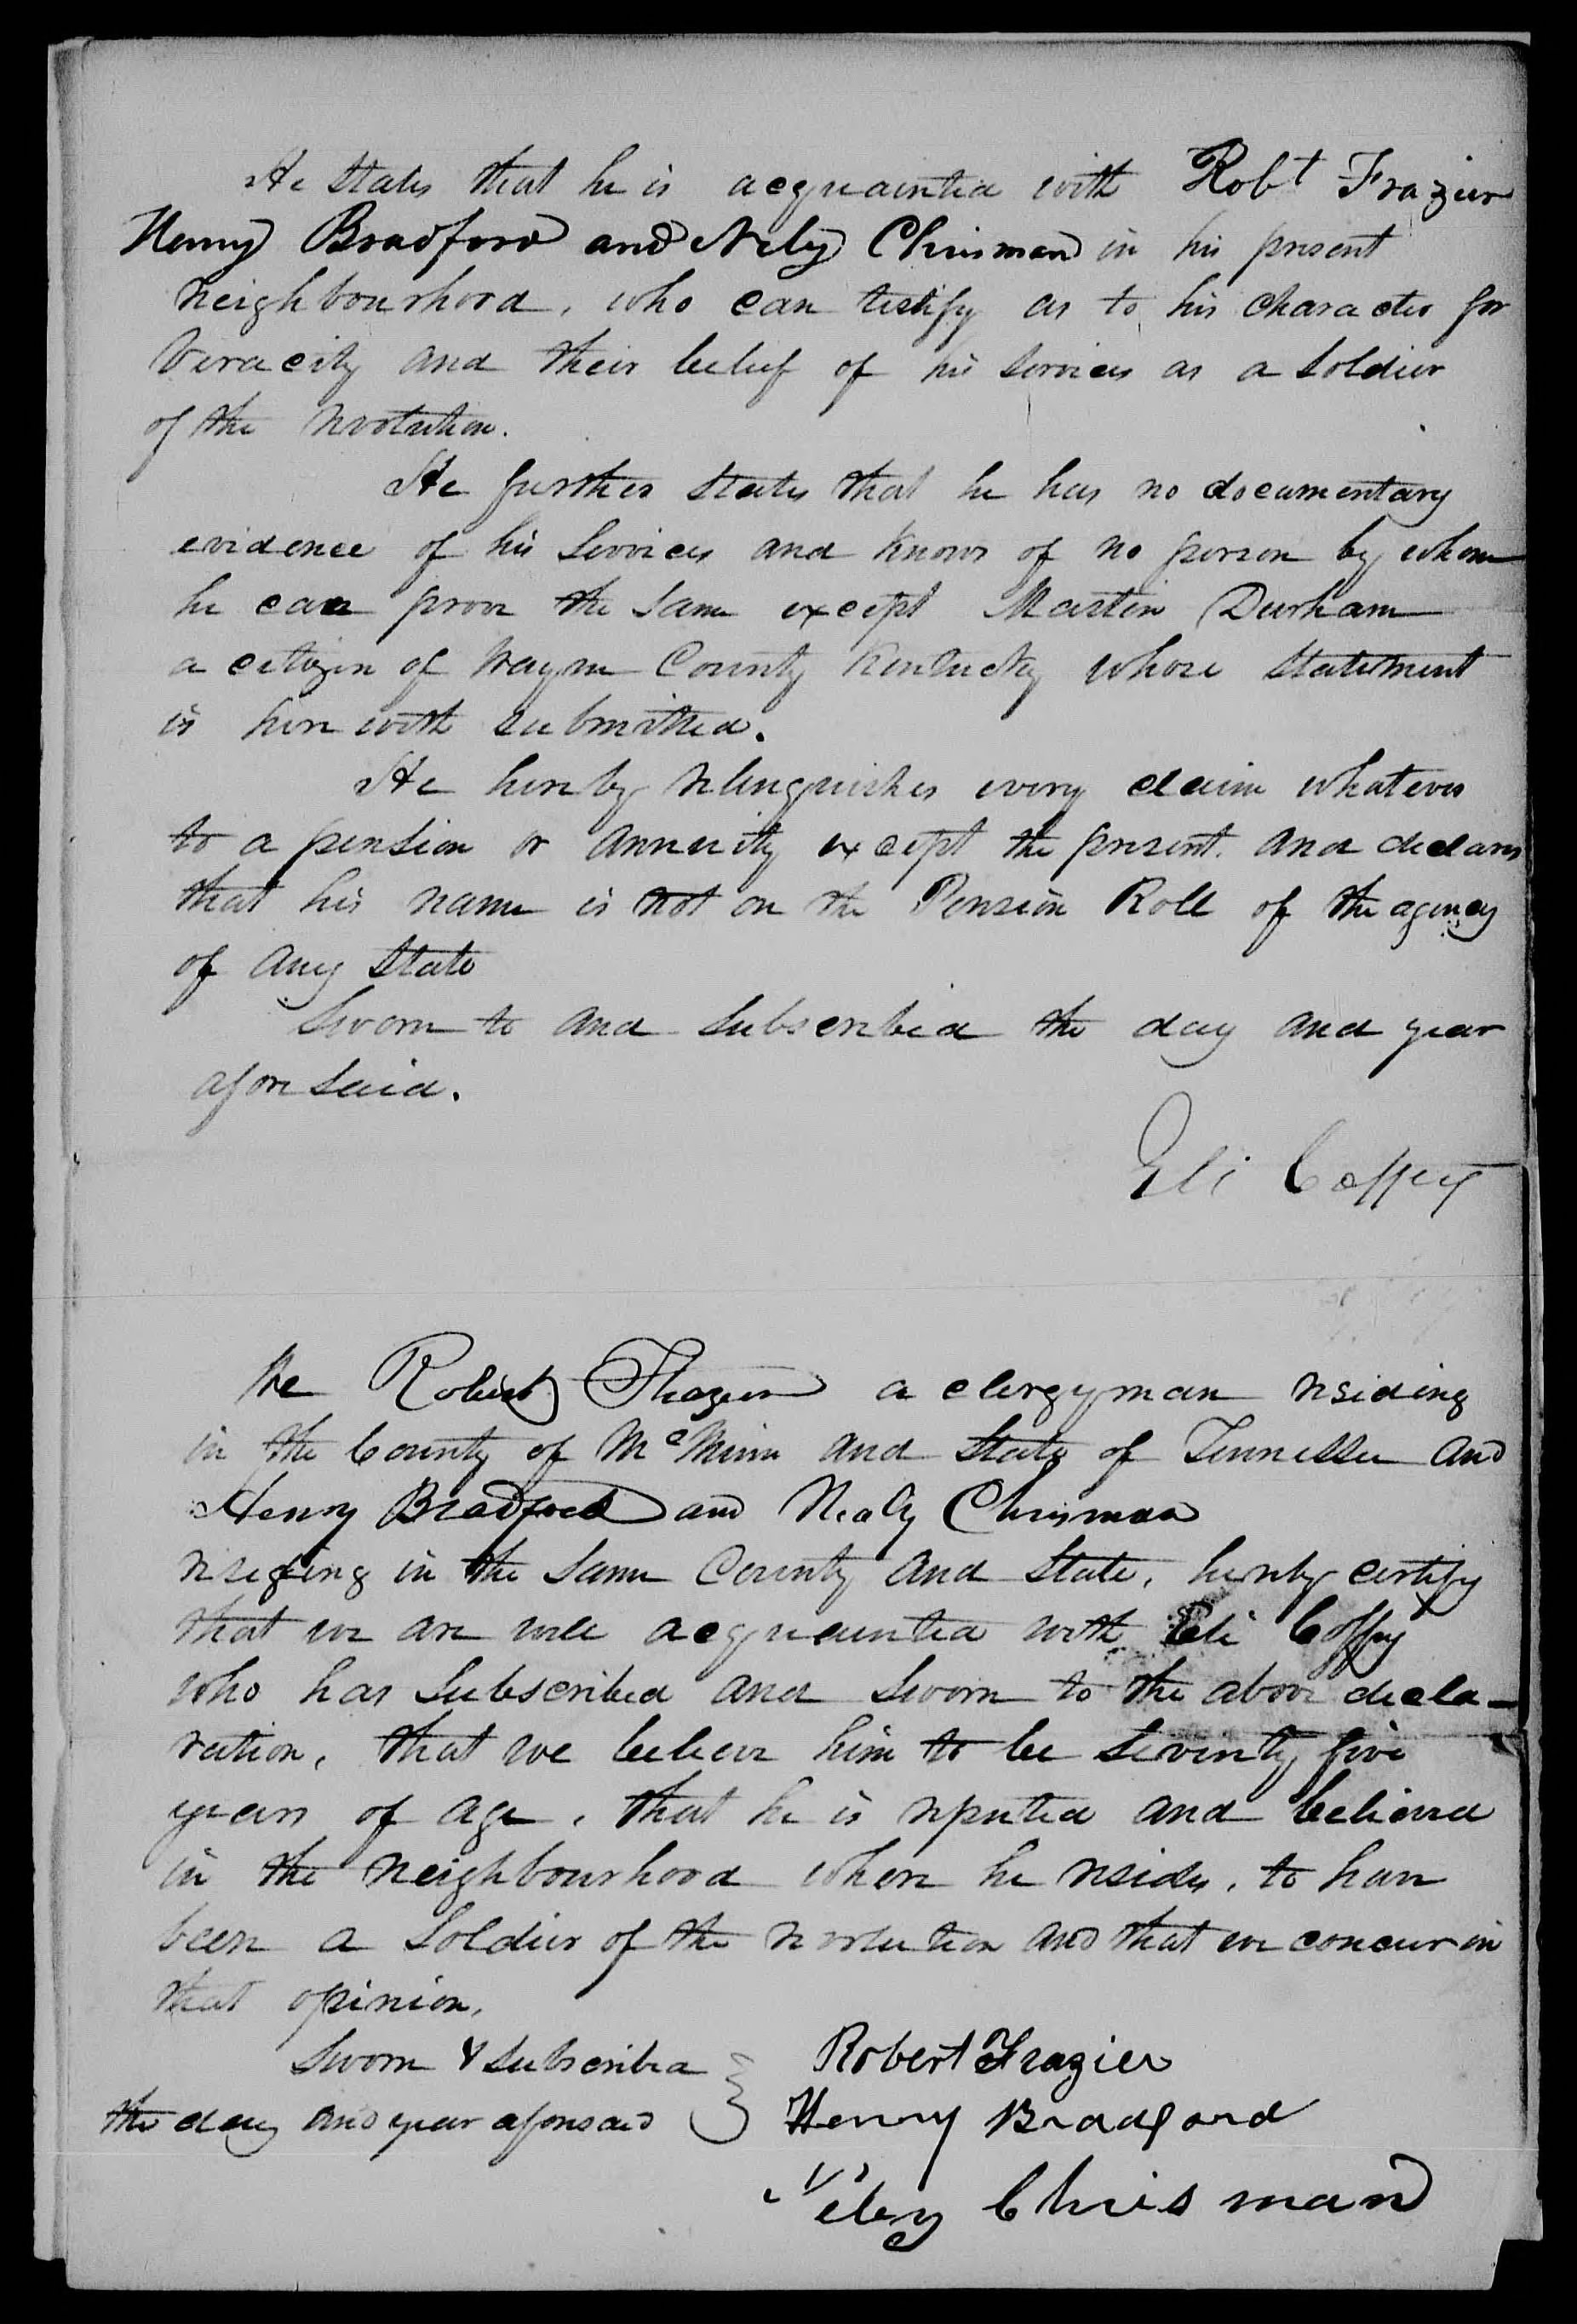 He states that he is acquainted with Robt Frazier
Henry Bradford and Nely Chrisman in his present
neighbourhood, who can testify as to his character for
veracity and their belief of his services as a soldier
of the revolution.
He further states that he has no documentary
evidence of his services and knows of no person by whom
he can prove the same except Martin Durham
a citizen of Wayne County Kentucky whose statement
is herewith submitted.
He hereby relinquishes every claim whatever
to a pension or annuity except the present. and declares
that his name is not on the Pension Roll of the agency
of any State
Sworn to and subscribed the day and year
aforesaid.
Eli Coffey
We Robert Frazier a clergyman residing
in the County of McMinn and State of Tennessee and
Henry Bradford and Nealy Chrisman
residing in the same County and State, hereby certify
that we are well acquainted with Eli Coffey
who has subscribed and sworn to the above decla-
ration, that we believe him to be seventy five
years of age, that he is reputed and believed
in the neighbourhood where he resides, to have
been a soldier of the revolution and that we concur in
that opinion.
Sworn & subscribed
the day and year aforesaid
Robert Frazier
Henry Bradford
Neley Chrisman